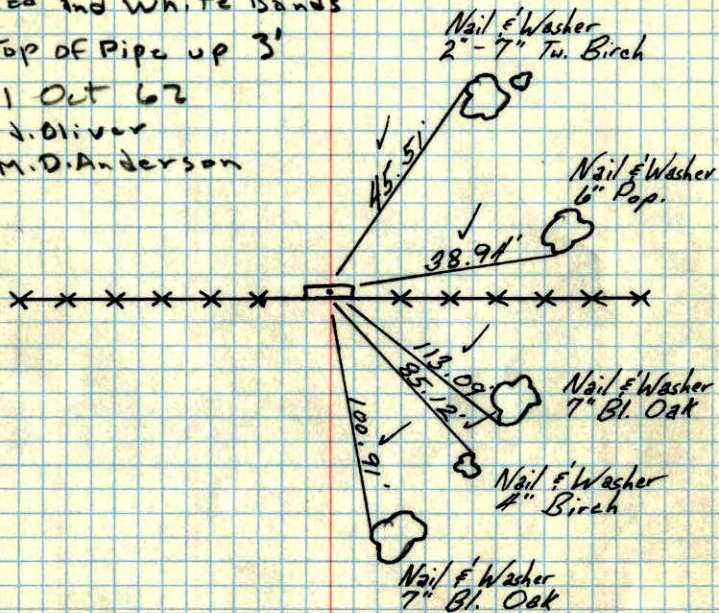 and White Bands
Top of Pipe up 3'
Oct 62
J. Oliver
M.D. Anderson
Nail & Washer
2" - 7" Tw. Birch
45.51'
Nail & Washer
6" Pop.
38.94'
113.09
85.12
Nail & Washer
7" Bl. Oak
100.91
Nail & Washer
4" Birch
Nail & Washer
7" Bl. Oak